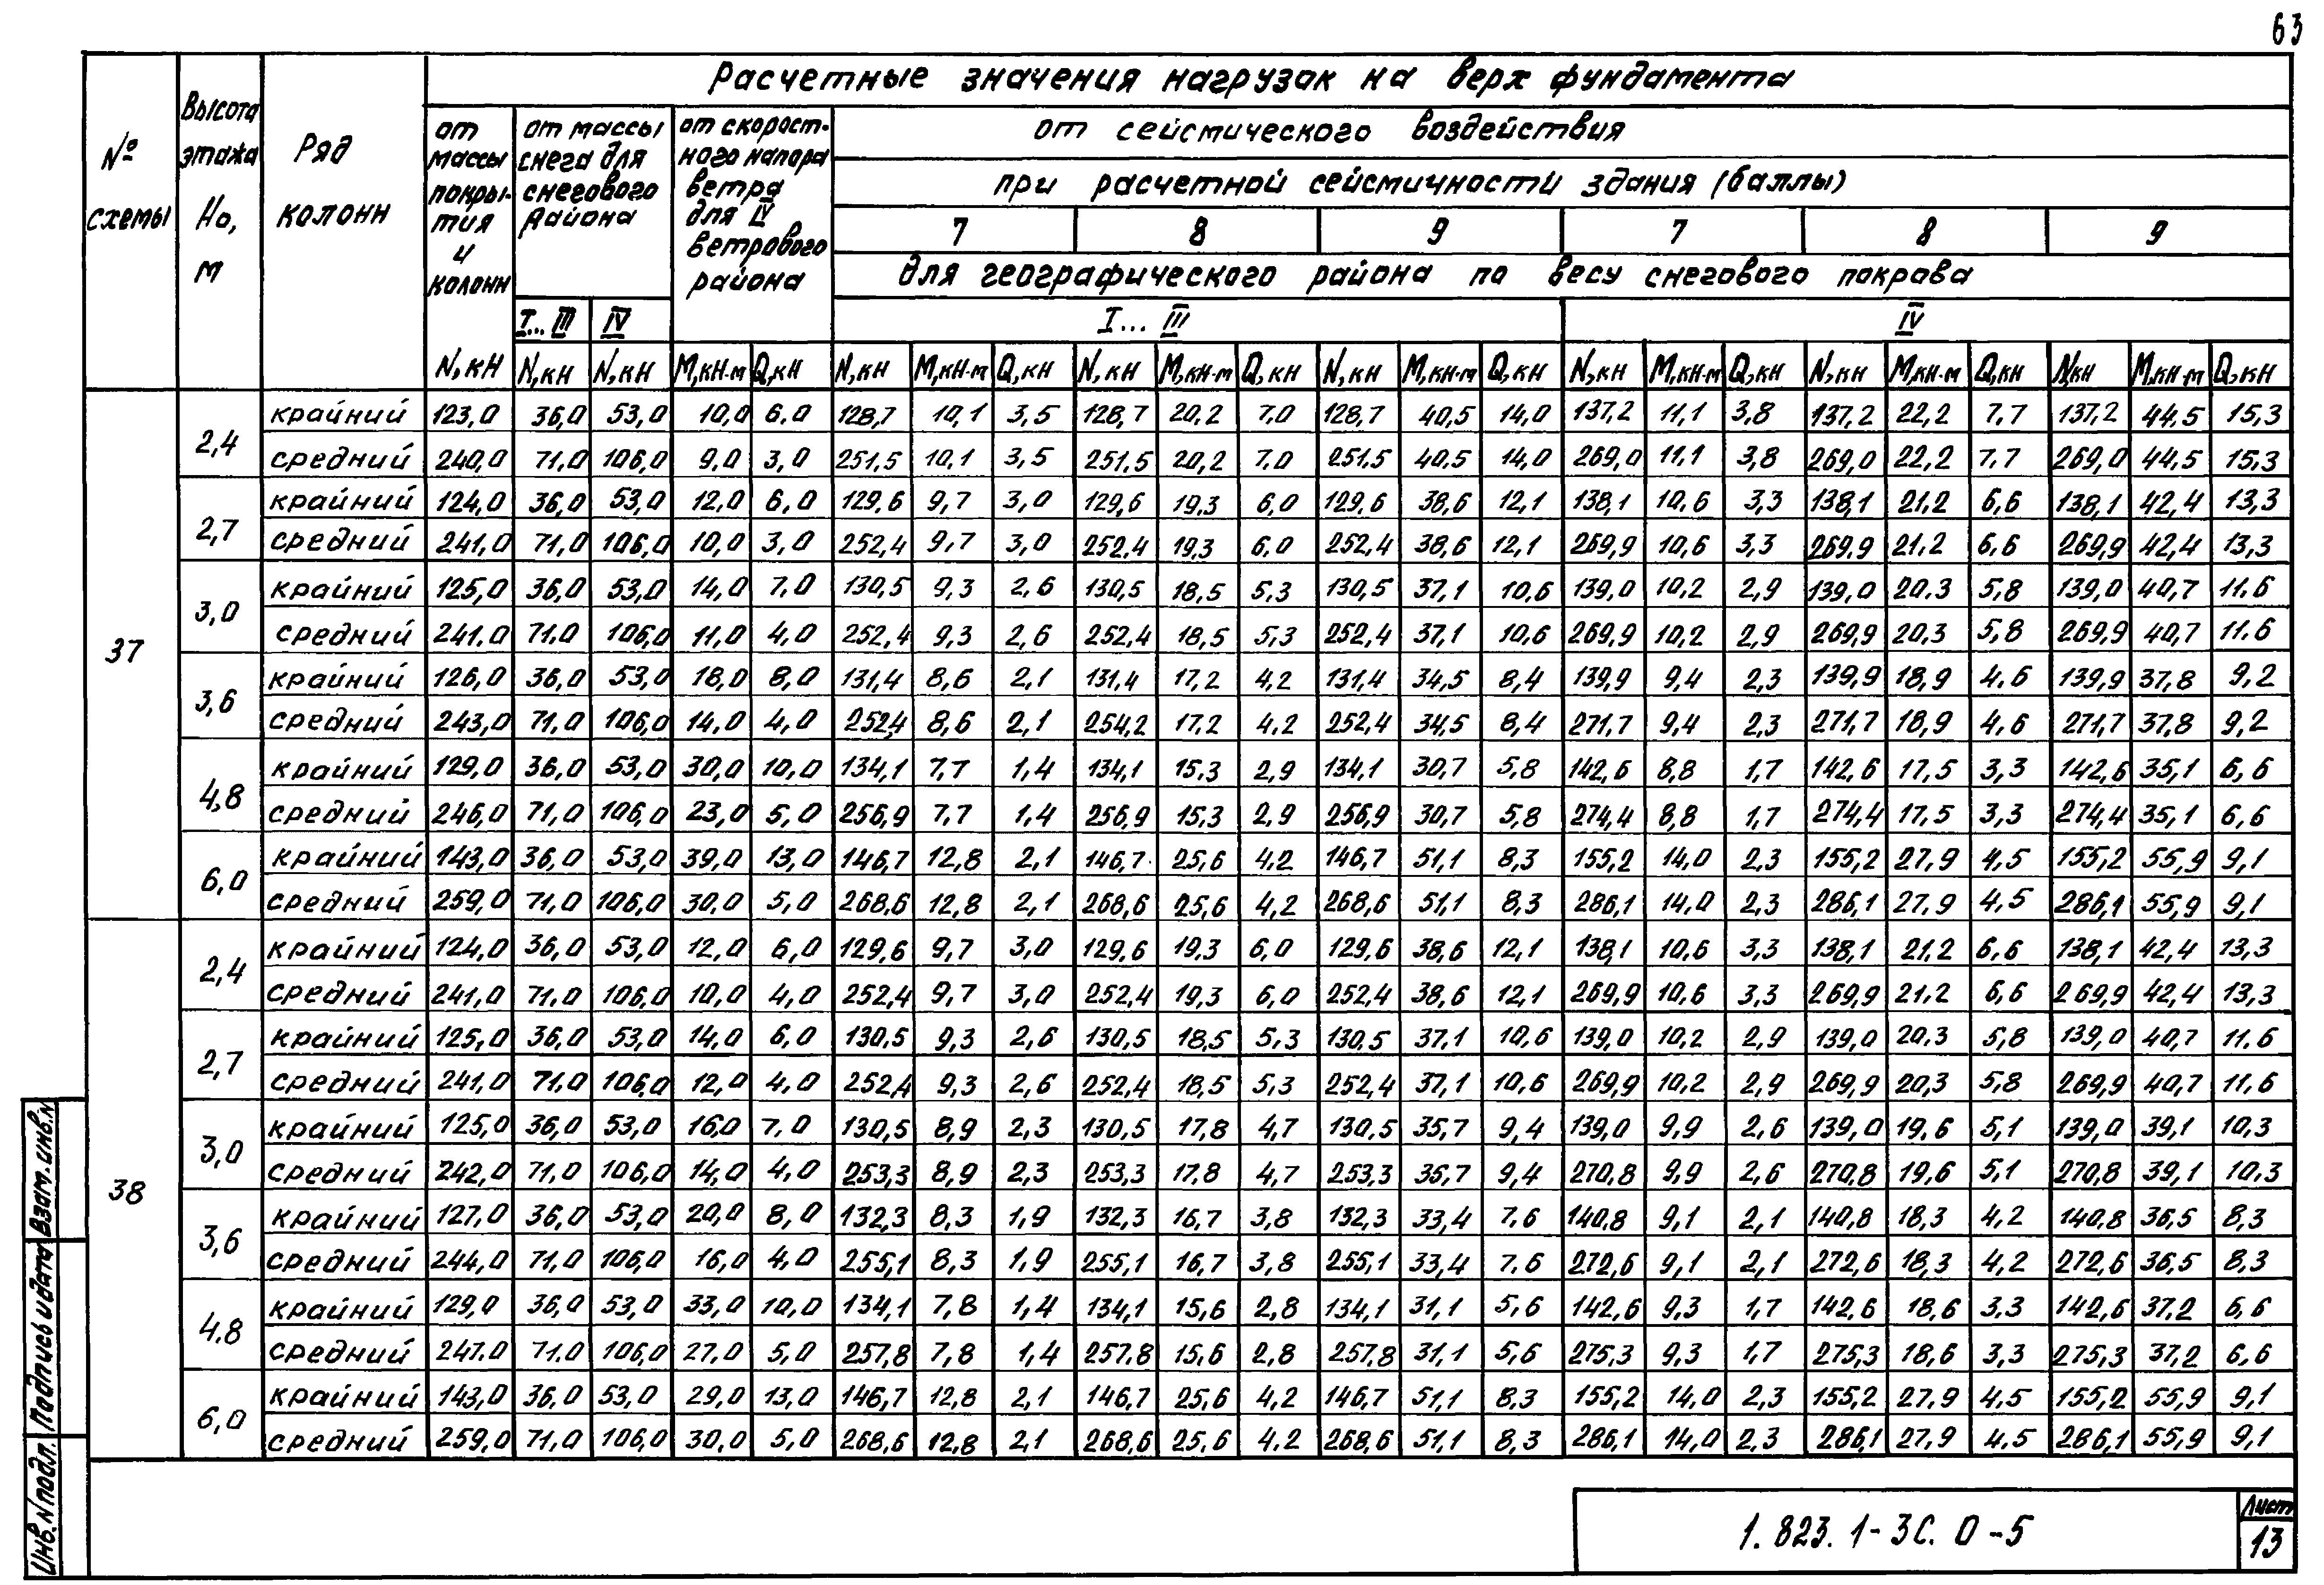 63
Расчетные значения нагрузок на верх фундамента
№ схемы
Высота этажа Но, м
Ряд колонн
от массы покры-тия и колонн
от массы снега для снегового района
от скорост-ного напора ветра для IV ветрового района
от сейсмического воздействия
при расчетной сейсмичности здания (баллы)
7 8 9 7 8 9
для географического района по весу снегового покрова
I... III IV I... III IV
N,кН N,кН N,кН М,кН·м Q,кН N,кН М,кН·м Q,кН N,кН М,кН·м Q,кН N,кН М,кН·м Q,кН N,кН М,кН·м Q,кН N,кН М,кН·м Q,кН N,кН М,кН·м Q,кН
37
2,4 крайний 123,0 36,0 53,0 10,0 6,0 128,7 10,1 3,5 128,7 20,2 7,0 128,7 40,5 14,0 137,2 11,1 3,8 137,2 22,2 7,7 137,2 44,5 15,3
средний 240,0 71,0 106,0 9,0 3,0 251,5 10,1 3,5 251,5 20,2 7,0 251,5 40,5 14,0 269,0 11,1 3,8 269,0 22,2 7,7 269,0 44,5 15,3
2,7 крайний 124,0 36,0 53,0 12,0 6,0 129,6 9,7 3,0 129,6 19,3 6,0 129,6 38,6 12,1 138,1 10,6 3,3 138,1 21,2 6,6 138,1 42,4 13,3
средний 241,0 71,0 106,0 10,0 3,0 252,4 9,7 3,0 252,4 19,3 6,0 252,4 38,6 12,1 269,9 10,6 3,3 269,9 21,2 6,6 269,9 42,4 13,3
3,0 крайний 125,0 36,0 53,0 14,0 7,0 130,5 9,3 2,6 130,5 18,5 5,3 130,5 37,1 10,6 139,0 10,2 2,9 139,0 20,3 5,8 139,0 40,7 11,6
средний 241,0 71,0 106,0 11,0 4,0 252,4 9,3 2,6 252,4 18,5 5,3 252,4 37,1 10,6 269,9 10,2 2,9 269,9 20,3 5,8 269,9 40,7 11,6
3,6 крайний 126,0 36,0 53,0 18,0 8,0 131,4 8,6 2,1 131,4 17,2 4,2 131,4 34,5 8,4 139,9 9,4 2,3 139,9 18,9 4,6 139,9 37,8 9,2
средний 243,0 71,0 106,0 14,0 4,0 252,4 8,6 2,1 254,2 17,2 4,2 252,4 34,5 8,4 271,7 9,4 2,3 271,7 18,9 4,6 271,7 37,8 9,2
4,8 крайний 129,0 36,0 53,0 30,0 10,0 134,1 7,7 1,4 134,1 15,3 2,9 134,1 30,7 5,8 142,6 8,8 1,7 142,6 17,5 3,3 142,6 35,1 6,6
средний 246,0 71,0 106,0 23,0 5,0 256,9 7,7 1,4 256,9 15,3 2,9 256,9 30,7 5,8 274,4 8,8 1,7 274,4 17,5 3,3 274,4 35,1 6,6
6,0 крайний 143,0 36,0 53,0 39,0 13,0 146,7 12,8 2,1 146,7 25,6 4,2 146,7 51,1 8,3 155,2 14,0 2,3 155,2 27,9 4,5 155,2 55,9 9,1
средний 259,0 71,0 106,0 30,0 5,0 268,6 12,8 2,1 268,6 25,6 4,2 268,6 51,1 8,3 286,1 14,0 2,3 286,1 27,9 4,5 286,1 55,9 9,1
38
2,4 крайний 124,0 36,0 53,0 12,0 6,0 129,6 9,7 3,0 129,6 19,3 6,0 129,6 38,6 12,1 138,1 10,6 3,3 138,1 21,2 6,6 138,1 42,4 13,3
средний 241,0 71,0 106,0 10,0 4,0 252,4 9,7 3,0 252,4 19,3 6,0 252,4 38,6 12,1 269,9 10,6 3,3 269,9 21,2 6,6 269,9 42,4 13,3
2,7 крайний 125,0 36,0 53,0 14,0 6,0 130,5 9,3 2,6 130,5 18,5 5,3 130,5 37,1 10,6 139,0 10,2 2,9 139,0 20,3 5,8 139,0 40,7 11,6
средний 241,0 71,0 106,0 12,0 4,0 252,4 9,3 2,6 252,4 18,5 5,3 252,4 37,1 10,6 269,9 10,2 2,9 269,9 20,3 5,8 269,9 40,7 11,6
3,0 крайний 125,0 36,0 53,0 16,0 7,0 130,5 8,9 2,3 130,5 17,8 4,7 130,5 35,7 9,4 139,0 9,9 2,6 139,0 19,6 5,1 139,0 39,1 10,3
средний 242,0 71,0 106,0 14,0 4,0 253,3 8,9 2,3 253,3 17,8 4,7 253,3 35,7 9,4 270,8 9,9 2,6 270,8 19,6 5,1 270,8 39,1 10,3
3,6 крайний 127,0 36,0 53,0 20,0 8,0 132,3 8,3 1,9 132,3 16,7 3,8 132,3 33,4 7,6 140,8 9,1 2,1 140,8 18,3 4,2 140,8 36,5 8,3
средний 244,0 71,0 106,0 16,0 4,0 255,1 8,3 1,9 255,1 16,7 3,8 255,1 33,4 7,6 272,6 9,1 2,1 272,6 18,3 4,2 272,6 36,5 8,3
4,8 крайний 129,0 36,0 53,0 33,0 10,0 134,1 7,8 1,4 134,1 15,6 2,8 134,1 31,1 5,6 142,6 9,3 1,7 142,6 18,6 3,3 142,6 37,2 6,6
средний 247,0 71,0 106,0 27,0 5,0 257,8 7,8 1,4 257,8 15,6 2,8 257,8 31,1 5,6 275,3 9,3 1,7 275,3 18,6 3,3 275,3 37,2 6,6
6,0 крайний 143,0 36,0 53,0 29,0 13,0 146,7 12,8 2,1 146,7 25,6 4,2 146,7 51,1 8,3 155,2 14,0 2,3 155,2 27,9 4,5 155,2 55,9 9,1
средний 259,0 71,0 106,0 30,0 5,0 268,6 12,8 2,1 268,6 25,6 4,2 268,6 51,1 8,3 286,1 14,0 2,3 286,1 27,9 4,5 286,1 55,9 9,1
Инв.N подл. Подпись и дата Взам.инв.N
1.823.1-3С.0-5
Лист
13